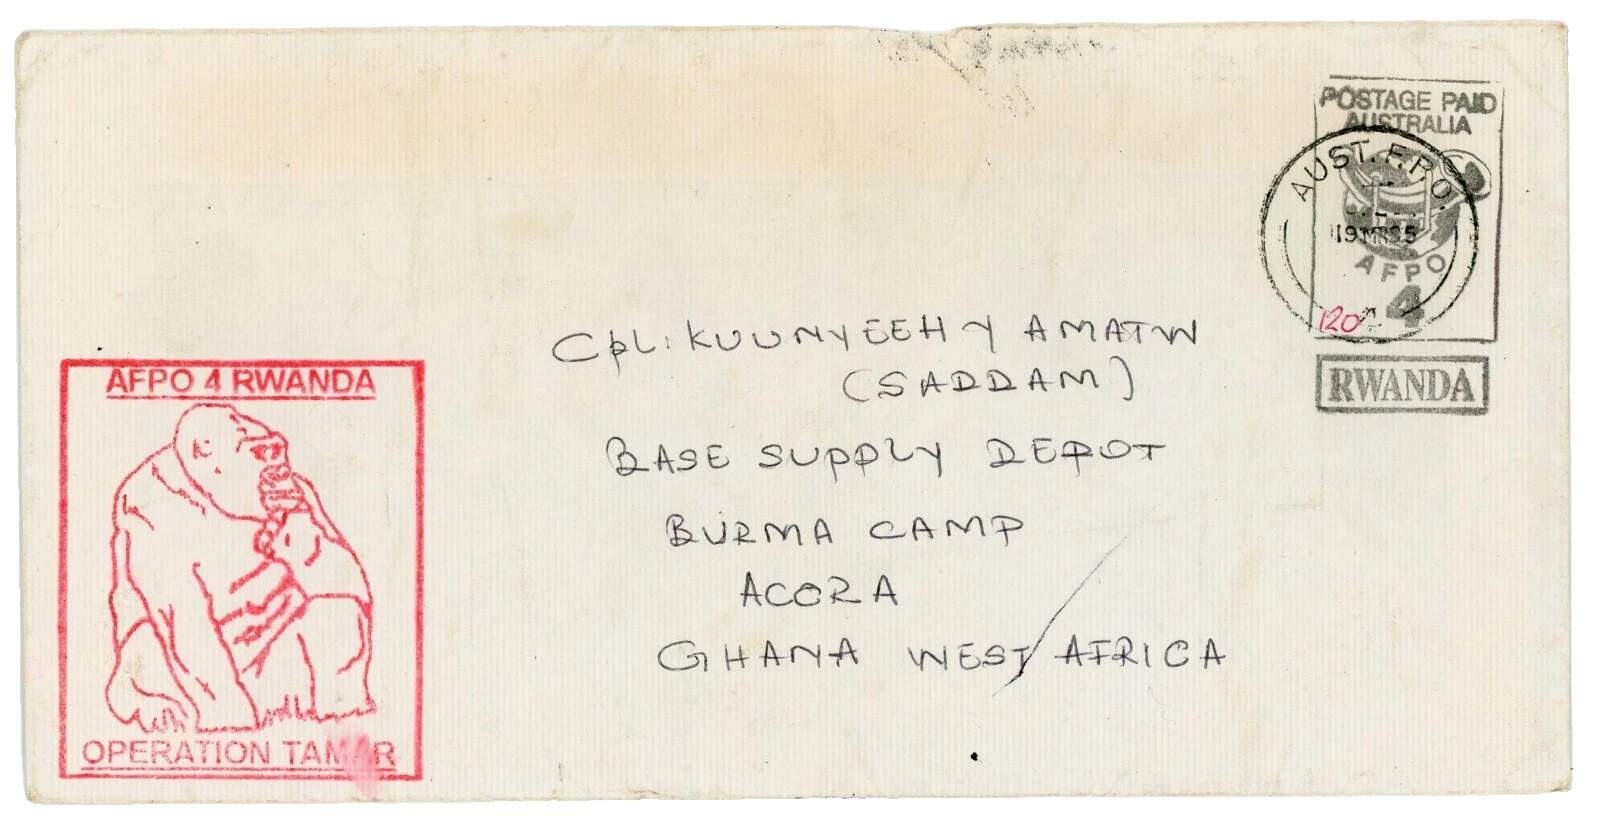 POSTAGE PAID
AUSTRALIA
AUST. F.P.O.
19MR95
AFPO
4
120
RWANDA
CPL. KUUNYEEH Y AMATW
(SADDAM)
BASE SUPPLY DEPOT
BURMA CAMP
ACCRA
GHANA WEST AFRICA
AFPO 4 RWANDA
OPERATION TAMAR